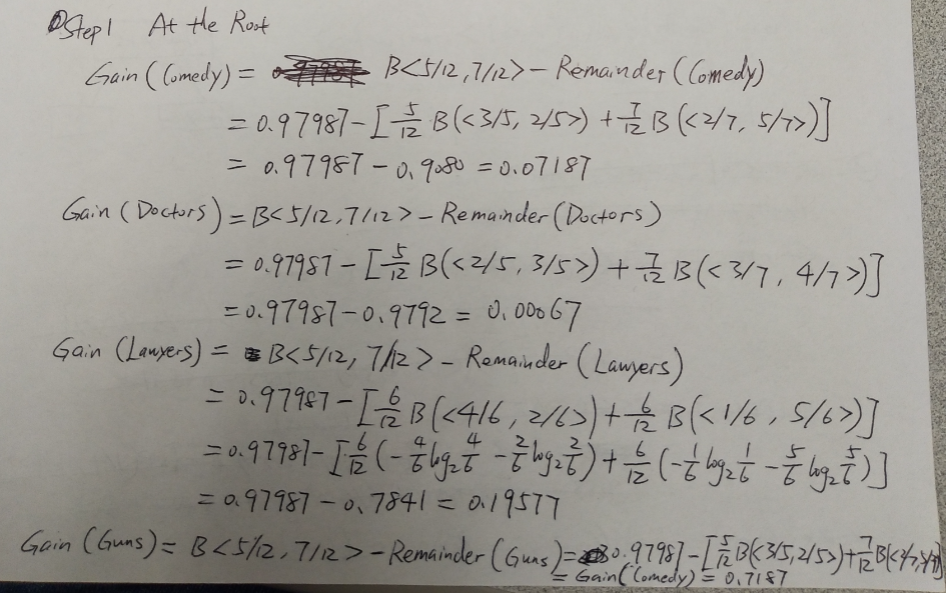 Step 1 At the Root
Gain (Comedy) = B<5/12, 7/12> - Remainder (Comedy)
= 0.97987 - [5/12 B(<3/5, 2/5>) + 7/12 B(<2/7, 5/7>)]
= 0.97987 - 0.9080 = 0.07187
Gain (Doctors) = B<5/12, 7/12> - Remainder (Doctors)
= 0.97987 - [5/12 B(<2/5, 3/5>) + 7/12 B(<3/7, 4/7>)]
= 0.97987 - 0.9792 = 0.00067
Gain (Lawyers) = B<5/12, 7/12> - Remainder (Lawyers)
= 0.97987 - [6/12 B(<4/6, 2/6>) + 6/12 B(<1/6, 5/6>)]
= 0.97987 - [6/12 (-4/6 log₂ 4/6 - 2/6 log₂ 2/6) + 6/12 (-1/6 log₂ 1/6 - 5/6 log₂ 5/6)]
= 0.97987 - 0.7841 = 0.19577
Gain (Guns) = B<5/12, 7/12> - Remainder (Guns) = 0.97987 - [5/12 B(<3/5, 2/5>) + 7/12 B(<2/7, 5/7>)]
= Gain (Comedy) = 0.7187